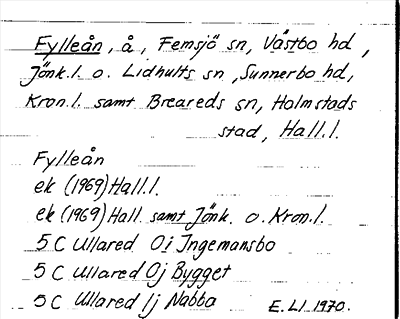 Fylleån, å, Femsjö sn, Västbo hd,
Jönk.l. o. Lidhults sn, Sunnerbo hd,
Kron.l. samt Breareds sn, Halmstads
stad, Hall.l.
Fylleån
ek (1969) Hall.l.
ek (1969) Hall samt Jönk. o. Kron.l.
5 C Ullared Oi Ingemansbo
5 C Ullared Oj Bygget
5 C Ullared Ij Nabba E. Ll 1970.